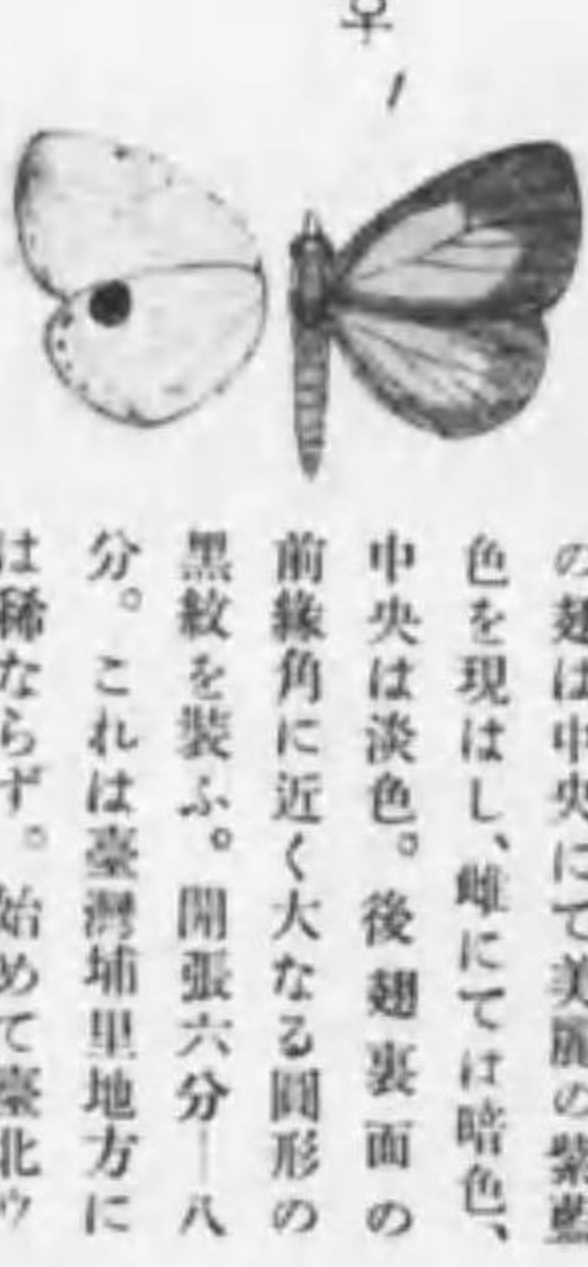 ♀
1
の翅は中央にて美麗の紫藍
色を現はし、雌にては暗色、
中央は淡色。後翅裏面の
前緣角に近く大なる圓形の
黑紋を裝ふ。開張六分—八
分。これは臺灣埔里地方に
は稀ならず。始めて臺北ゥ